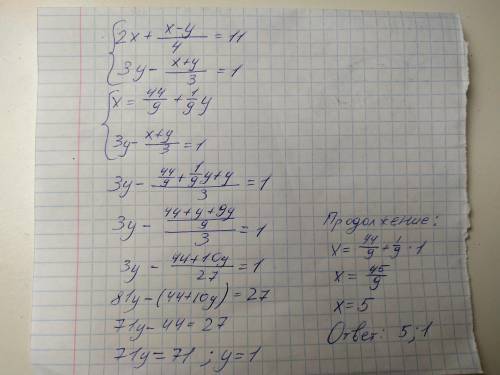 2x + (x-y)/4 = 11
3y - (x+y)/3 = 1
x = 44/9 + 1/9 y
3y - (x+y)/3 = 1
3y - (44/9 + 1/9 y + y)/3 = 1
3y - ((44+y+9y)/9)/3 = 1
3y - (44+10y)/27 = 1
81y - (44+10y) = 27
71y - 44 = 27
71y = 71 ; y = 1
Продолжение:
x = 44/9 + 1/9 · 1
x = 45/9
x = 5
Ответ: 5;1